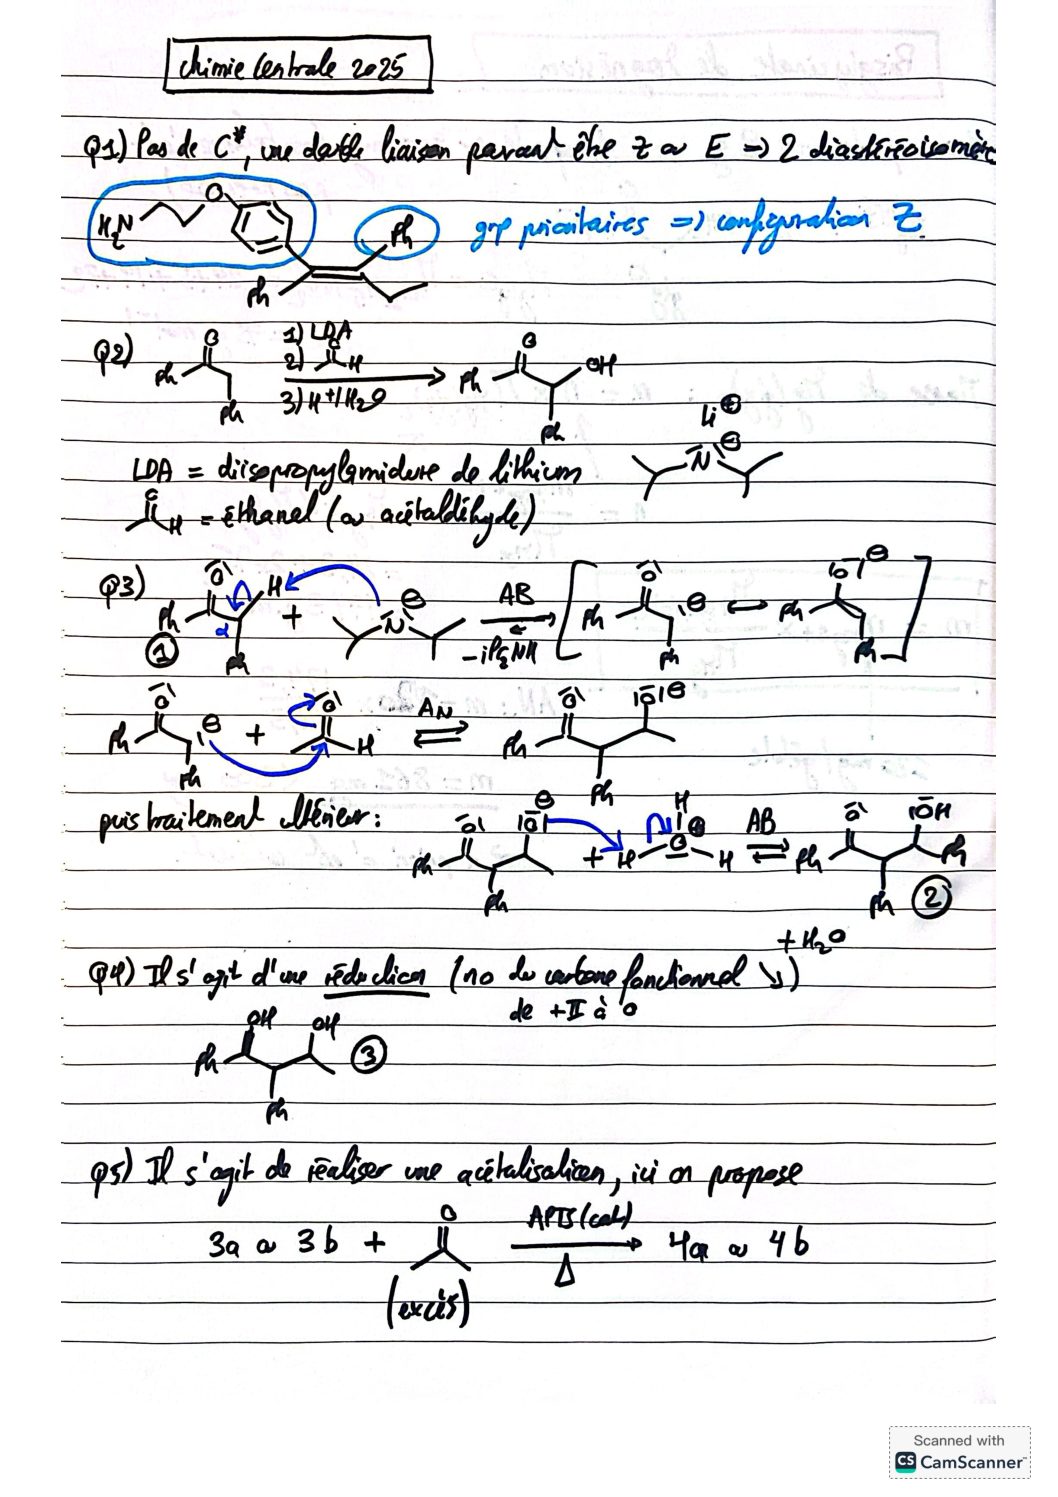 chimie Centrale 2025
Q1) Pas de C*, une double liaison pouvant être Z ou E => 2 diastéréoisomères
H2N O Ph grp prioritaires => configuration Z
Ph
Q2) O 1) LDA O
Ph 2) O H Ph OH
Ph 3) H+/H2O Ph
LDA = diisopropylamidure de lithium Li⊕ N⊖
O H = éthanal (ou acétaldéhyde)
Q3) O H AB O ⊖ O ⊖
Ph α + N⊖ Ph ⊖ ↔ Ph
① Ph -iPr2NH Ph Ph
O ⊖ O AN O O⊖
Ph + H Ph
Ph Ph
puis traitement ultérieur: O O⊖ H AB O OH
Ph + H O⊕ H Ph Ph
Ph Ph ②
+ H2O
Q4) Il s'agit d'une réduction (no du carbone fonctionnel ↘)
de +II à 0
OH OH
Ph ③
Ph
Q5) Il s'agit de réaliser une acétalisation, ici on propose
3a ou 3b + O APTS (cat) 4a ou 4b
Δ
(excès)
Scanned with
CS CamScanner